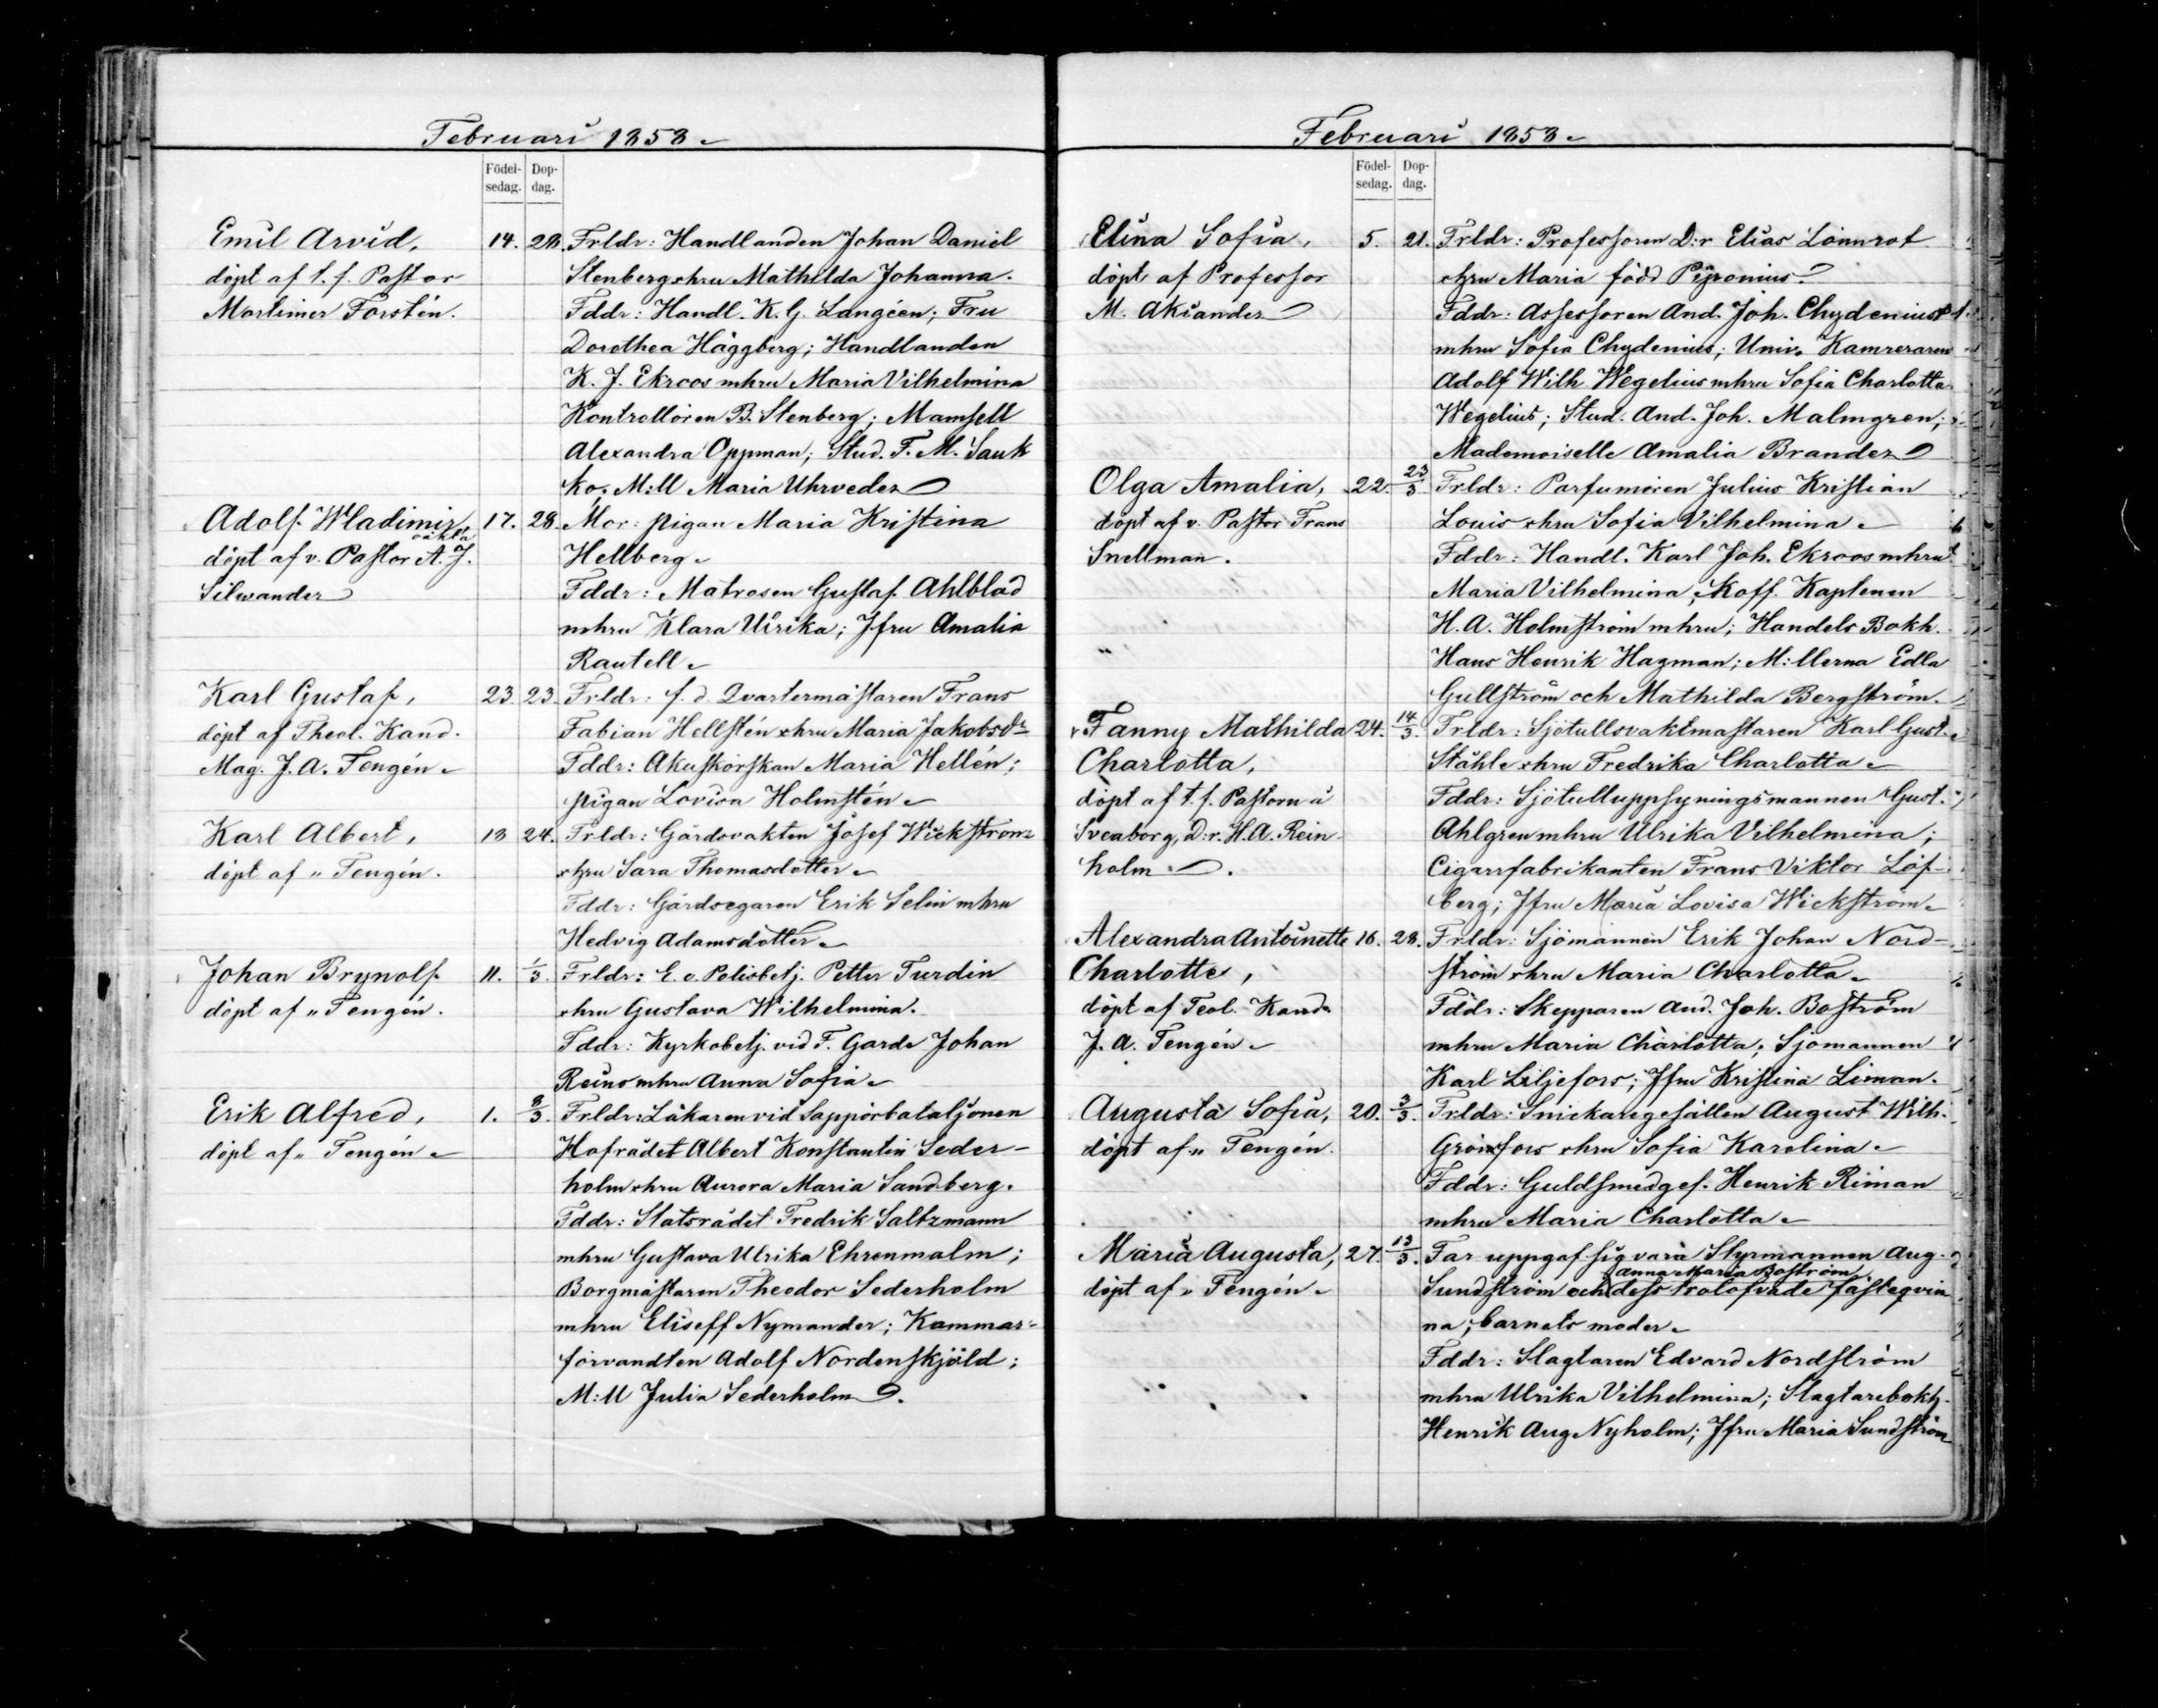 Februari 1858
Födel-
sedag.
Dop-
dag.
Emil Arvid,
döpt af t. f. Pastor
Mortimer Forstén.
14. 28.
Frldr: Handlanden Johan Daniel
Stenberg o hru Mathilda Johanna.
Fddr: Handl. K. G. Langéen; Fru
Dorothea Häggberg; Handlanden
K. J. Ekroos mhru Maria Vilhelmina
Kontrollören B. Stenberg; Mamsell
Alexandra Oppman; Stud. F. M. Sauk
ko; M:ll Maria Uhrveder
Adolf Wladimir
oäkta
döpt af v. Pastor A. J.
Silwander
17. 28.
Mor: pigan Maria Kristina
Hellberg
Fddr: Matrosen Gustaf Ahlblad
mhru Klara Ulrika; Jfru Amalia
Rautell
Karl Gustaf,
döpt af Theol. Kand.
Mag. J. A. Tengén
23. 23.
Frldr: f. d. Qvartermästaren Frans
Fabian Hellstén o hru Maria Jakobsdr
Fddr: Akuskörskan Maria Hellén;
pigan Lovisa Holmstén
Karl Albert,
döpt af " Tengén.
13 24.
Frldr: Gårdsvakten Josef Wickström
o hru Sara Thomasdotter
Fddr: Gårdsegaren Erik Selin mhru
Hedvig Adamsdotter
Johan Brynolf
döpt af " Tengén.
11. 1/3.
Frldr: E. o. Polisbetj. Petter Turdin
o hru Gustava Wilhelmina.
Fddr: Kyrkobetj. vid F. Garde Johan
Reins mhru Anna Sofia
Erik Alfred,
döpt af " Tengén
1. 8/3.
Frldr: Läkaren vid Sappörbataljonen
Hofrådet Albert Konstantin Seder-
holm o hru Aurora Maria Sandberg.
Fddr: Statsrådet Fredrik Saltzmann
mhru Gustava Ulrika Ehrenmalm;
Borgmästaren Theodor Sederholm
mhru Eliseff Nymander; Kammar-
förvandten Adolf Nordenskjöld;
M:ll Julia Sederholm.
Februari 1858
Födel-
sedag.
Dop-
dag.
Elina Sofia,
döpt af Professor
M. Akiander
5. 21.
Frldr: Professoren D:r Elias Lönnrot
o hru Maria född Piponius.
Fddr: Assessoren And. Joh. Chydenius
mhru Sofia Chydenius; Univ. Kamreraren
Adolf Wilh Wegelius mhru Sofia Charlotta
Wegelius; Stud. And. Joh. Malmgren;
Mademoiselle Amalia Brander
Olga Amalia,
döpt af v. Pastor Frans
Snellman.
22. 23/3.
Frldr: Parfumören Julius Kristian
Louis o hru Sofia Vilhelmina
Fddr: Handl. Karl Joh. Ekroos mhru
Maria Vilhelmina; Koff. Kaptenen
H. A. Holmström mhru; Handels Bokh.
Hans Henrik Hagman; M:llerna Edla
Gullström och Mathilda Bergström.
Fanny Mathilda
Charlotta,
döpt af t. f. Pastorn å
Sveaborg, D:r. H. A. Rein
holm.
24. 14/3.
Frldr: Sjötullsvaktmästaren Karl Gust.
Ståhle o hru Fredrika Charlotta
Fddr: Sjötulluppsyningsmannen Gust.
Ahlgren mhru Ulrika Vilhelmina;
Cigarrfabrikanten Frans Viktor Löf-
berg; Jfru Maria Lovisa Wickström
Alexandra Antoinette
Charlotte,
döpt af Teol. Kand.
J. A. Tengén
16. 28.
Frldr: Sjömannen Erik Johan Nord-
ström o hru Maria Charlotta
Fddr: Skepparen And. Joh. Boström
mhru Maria Charlotta; Sjömannen
Karl Liljefors; Jfru Kristina Liman.
Augusta Sofia,
döpt af " Tengén.
20. 3/3.
Frldr: Snickaregesällen August Wilh.
Grönfors o hru Sofia Karolina
Fddr: Guldsmedges. Henrik Riman
mhru Maria Charlotta
Maria Augusta,
döpt af " Tengén
27. 13/3.
Far uppgaf sig vara Styrmannen Aug.
Anna Maria Boström
Sundström och dess trolofvade fästeqvin
na, barnets moder
Fddr: Slagtaren Edvard Nordström
mhru Ulrika Vilhelmina; Slagtarebokh.
Henrik Aug Nyholm; Jfru Maria Sundström